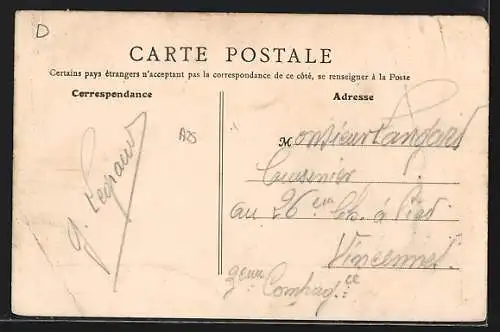 D
CARTE POSTALE
Certains pays étrangers n'acceptant pas la correspondance de ce côté, se renseigner à la Poste
Correspondance
Adresse
A25
Monsieur
Cuisinier
au 26eme Ch. à Pied
Vincennes
2eme Compag.ie